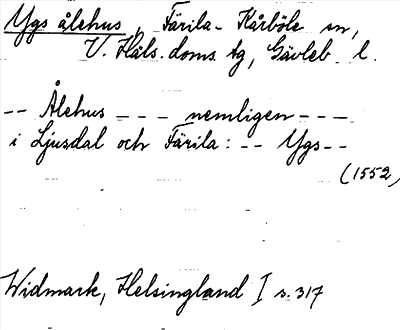 Ygs ålehus, Färila-Kårböle sn,
V. Häls. doms. tg, Gävleb. l.
-- Ålehus --- nemligen ---
i Ljusdal och Färila: -- Ygs--
(1552)
Widmark, Helsingland I s. 317